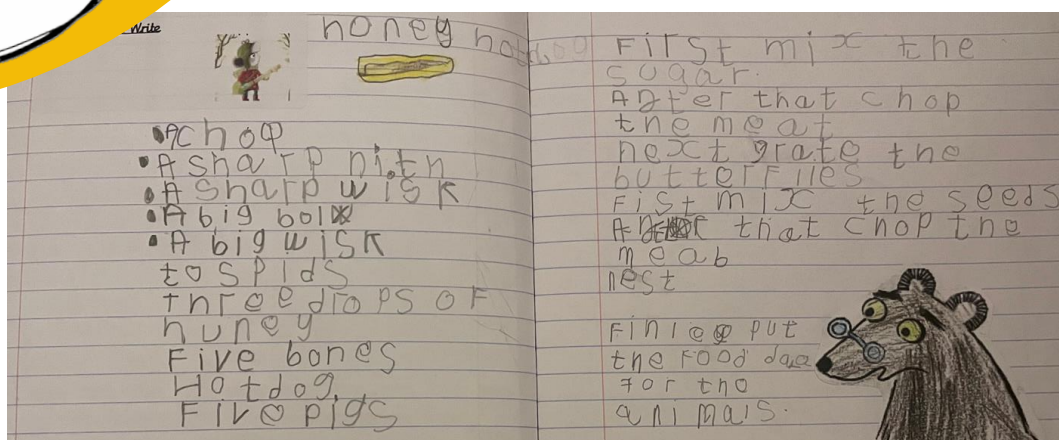 Write
honey hotdog
• A chop
• A sharp nitn
• A sharp wisk
• A big bolw
• A big wisk
to spids
three drops of
huney
Five bones
Hotdog
Five pigs
First mix the
sugar.
After that chop
the meat
next grate the
butterflies
Fist mix the seeds
After that chop the
meab
nest
put
the food
for the
animals.